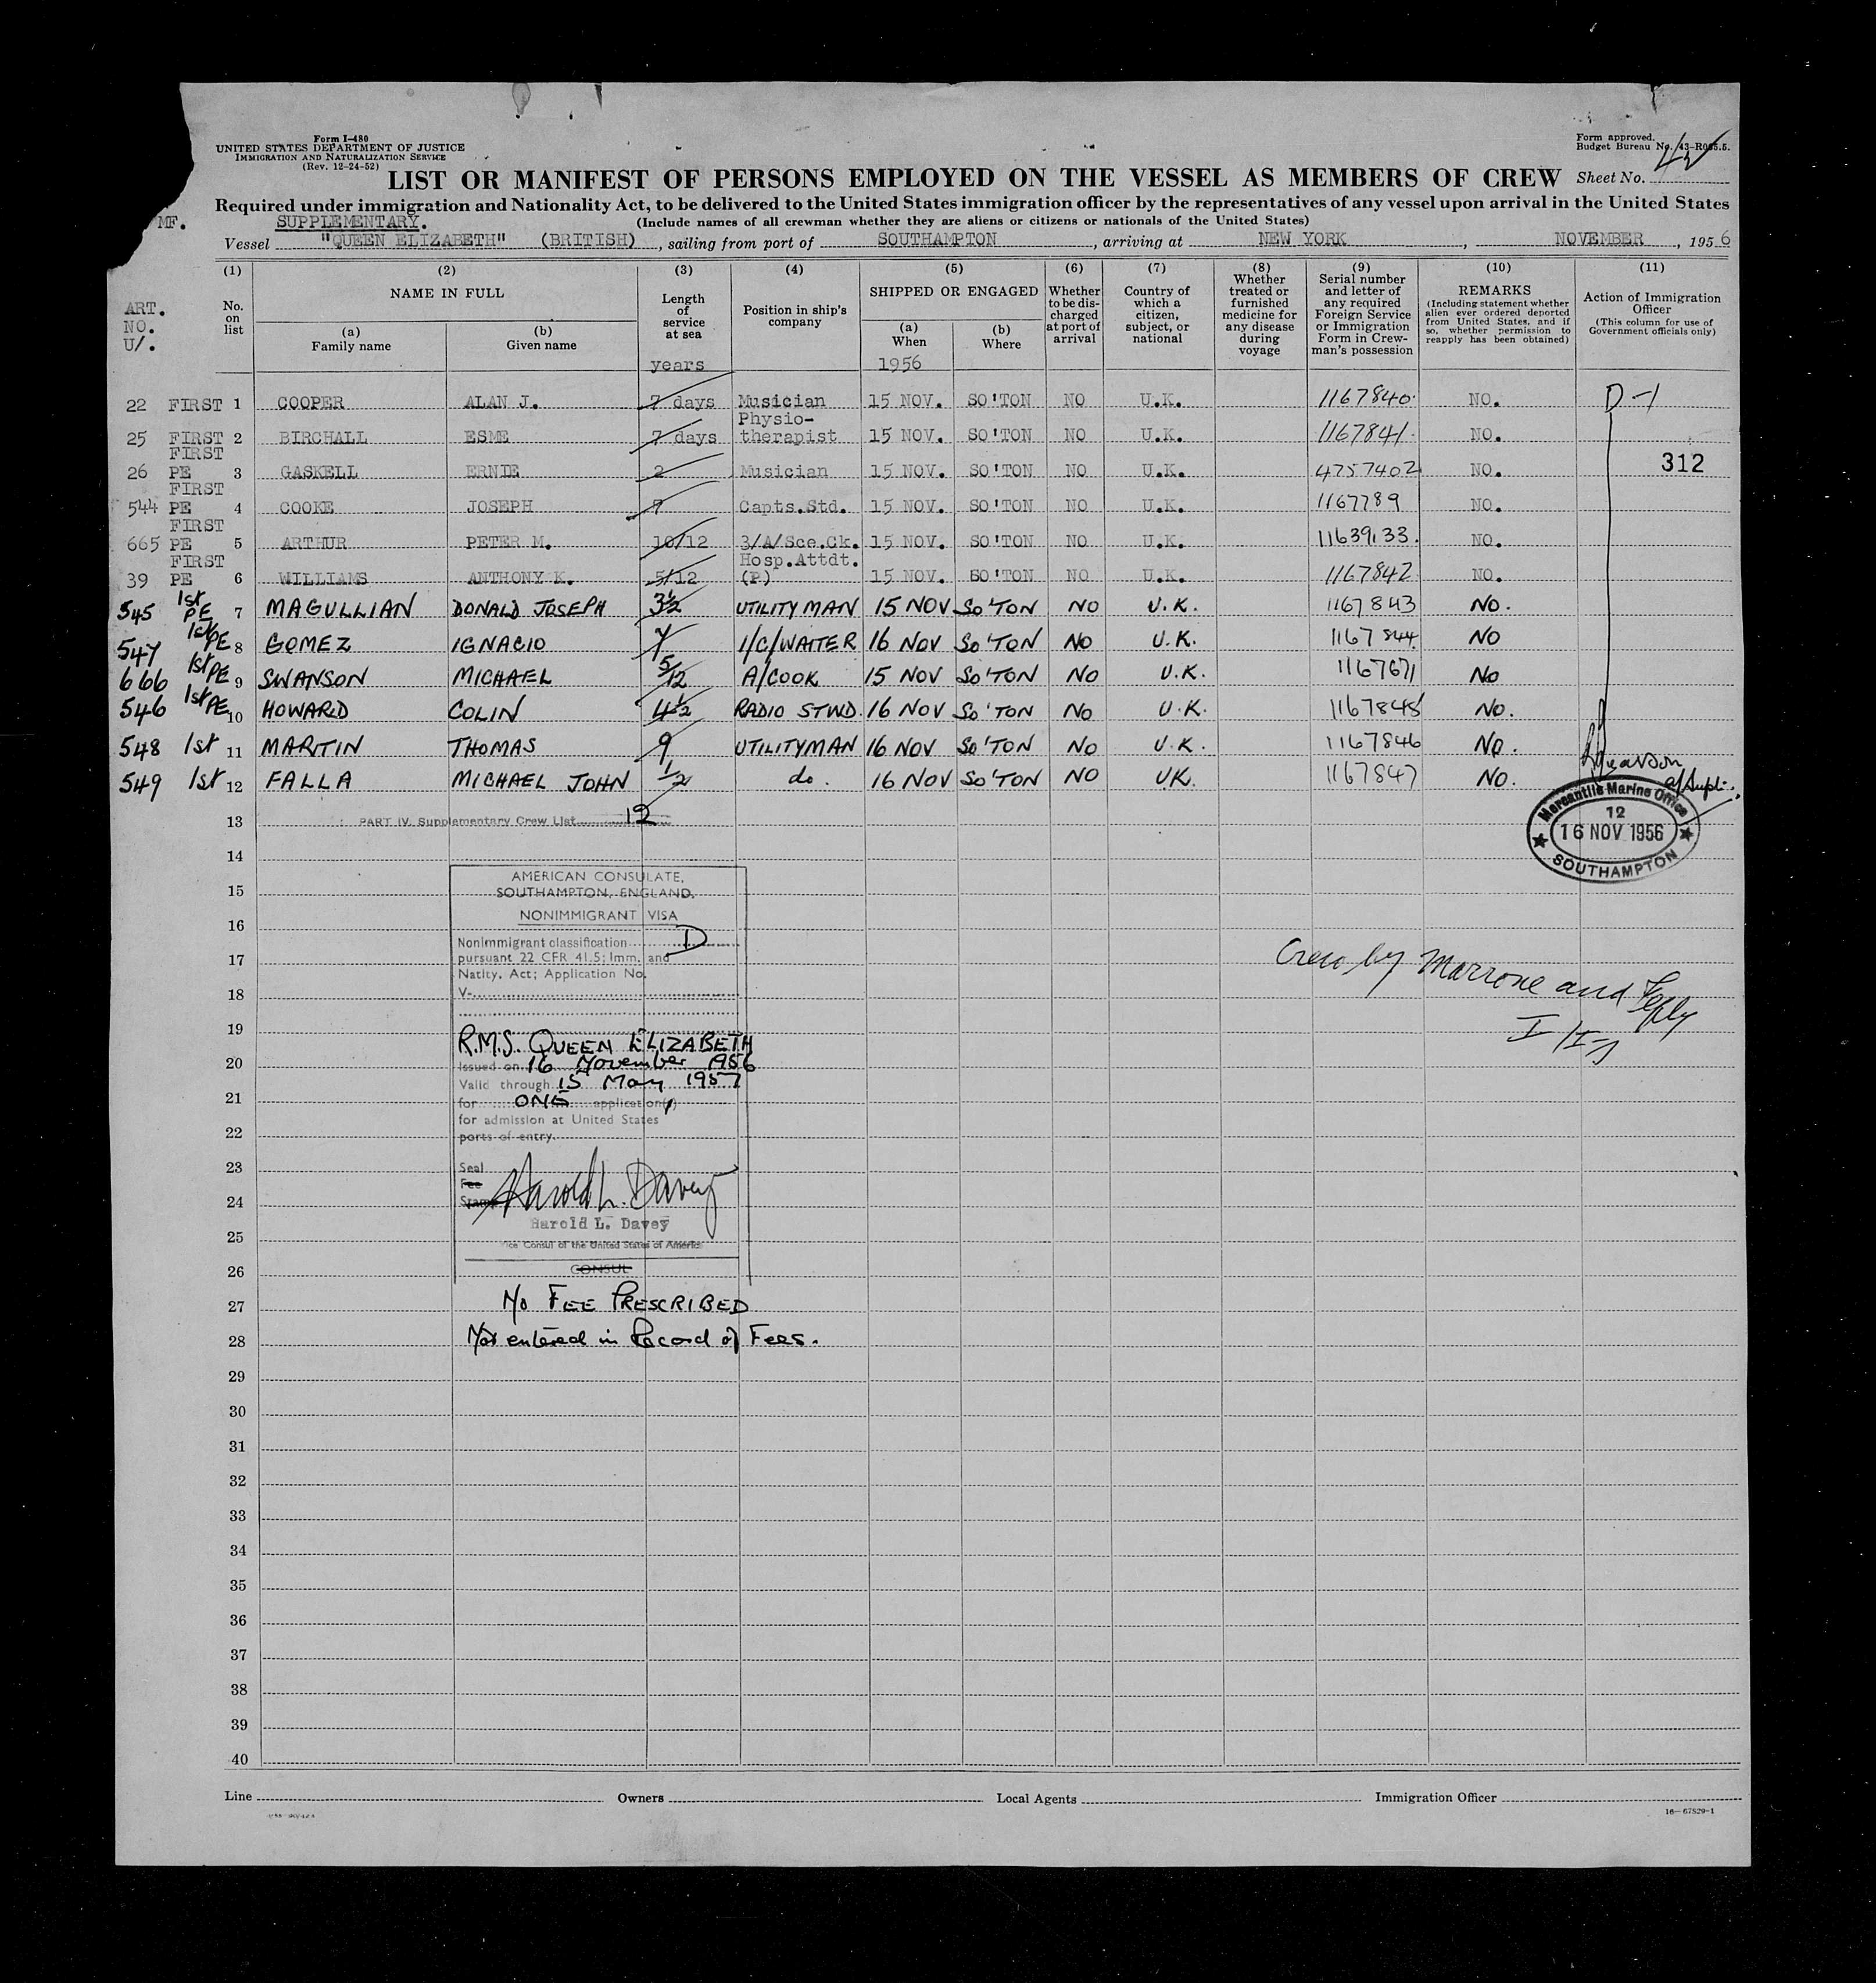 Form I-480
UNITED STATES DEPARTMENT OF JUSTICE
IMMIGRATION AND NATURALIZATION SERVICE
(Rev. 12-24-52)
Form approved.
Budget Bureau No. 43-R065.5.
LIST OR MANIFEST OF PERSONS EMPLOYED ON THE VESSEL AS MEMBERS OF CREW Sheet No.
Required under immigration and Nationality Act, to be delivered to the United States immigration officer by the representatives of any vessel upon arrival in the United States
MF. SUPPLEMENTARY. (Include names of all crewman whether they are aliens or citizens or nationals of the United States)
Vessel "QUEEN ELIZABETH" (BRITISH), sailing from port of SOUTHAMPTON, arriving at NEW YORK, NOVEMBER, 1956
ART. NO. U/.
(1) No. on list
(2) NAME IN FULL (a) Family name (b) Given name
(3) Length of service at sea years
(4) Position in ship's company
(5) SHIPPED OR ENGAGED (a) When 1956 (b) Where
(6) Whether to be discharged at port of arrival
(7) Country of which a citizen, subject, or national
(8) Whether treated or furnished medicine for any disease during voyage
(9) Serial number and letter of any required Foreign Service or Immigration Form in Crewman's possession
(10) REMARKS (Including statement whether alien ever ordered deported from United States, and if so, whether permission to reapply has been obtained)
(11) Action of Immigration Officer (This column for use of Government officials only)
22 FIRST 1 COOPER ALAN J. 7 days Musician 15 NOV. SO'TON NO U.K. 1167840 NO. D-1
25 FIRST 2 BIRCHALL ESME 7 days Physio-therapist 15 NOV. SO'TON NO U.K. 1167841 NO.
26 FIRST PE 3 GASKELL ERNIE 2 Musician 15 NOV. SO'TON NO U.K. 4757402 NO. 312
544 FIRST PE 4 COOKE JOSEPH 7 Capts.Std. 15 NOV. SO'TON NO U.K. 1167789 NO.
665 FIRST PE 5 ARTHUR PETER M. 10/12 3/A/Sce.Ck. 15 NOV. SO'TON NO U.K. 1163933. NO.
39 FIRST PE 6 WILLIAMS ANTHONY K. 5/12 Hosp.Attdt. (P) 15 NOV. SO'TON NO U.K. 1167842 NO.
545 1st PE 7 MAGULLIAN DONALD JOSEPH 3½ UTILITY MAN 15 NOV SO'TON NO U.K. 1167843 NO.
547 1st PE 8 GOMEZ IGNACIO 7 1/C/WAITER 16 NOV SO'TON NO U.K. 1167844 NO
666 1st PE 9 SWANSON MICHAEL 5/12 A/COOK 15 NOV SO'TON NO U.K. 1167671 NO
546 1st PE 10 HOWARD COLIN 4½ RADIO STWD. 16 NOV SO'TON NO U.K. 1167845 NO.
548 1st 11 MARTIN THOMAS 9 UTILITYMAN 16 NOV SO'TON NO U.K. 1167846 NO.
549 1st 12 FALLA MICHAEL JOHN ½ do. 16 NOV SO'TON NO UK. 1167847 NO.
13 PART IV. Supplementary Crew List 12
Mercantile Marine Office
12
16 NOV 1956
SOUTHAMPTON
14
AMERICAN CONSULATE,
15 SOUTHAMPTON, ENGLAND.
NONIMMIGRANT VISA
16
Nonimmigrant classification D
17 pursuant 22 CFR 41.5; Imm. and
Natity. Act; Application No.
18 V-
Crew by Marrone and
19
R.M.S. QUEEN ELIZABETH
20 Issued on 16 November 1956
Valid through 15 May 1957
21 for ONE application(s)
for admission at United States
22 ports of entry.
23 Seal
Fee
24 Stamp Harold L. Davey
Harold L. Davey
25 Vice Consul of the United States of America
26 CONSUL
27 NO FEE PRESCRIBED
28 Not entered in Record of Fees.
29
30
31
32
33
34
35
36
37
38
39
40
Line Owners Local Agents Immigration Officer
16-67829-1